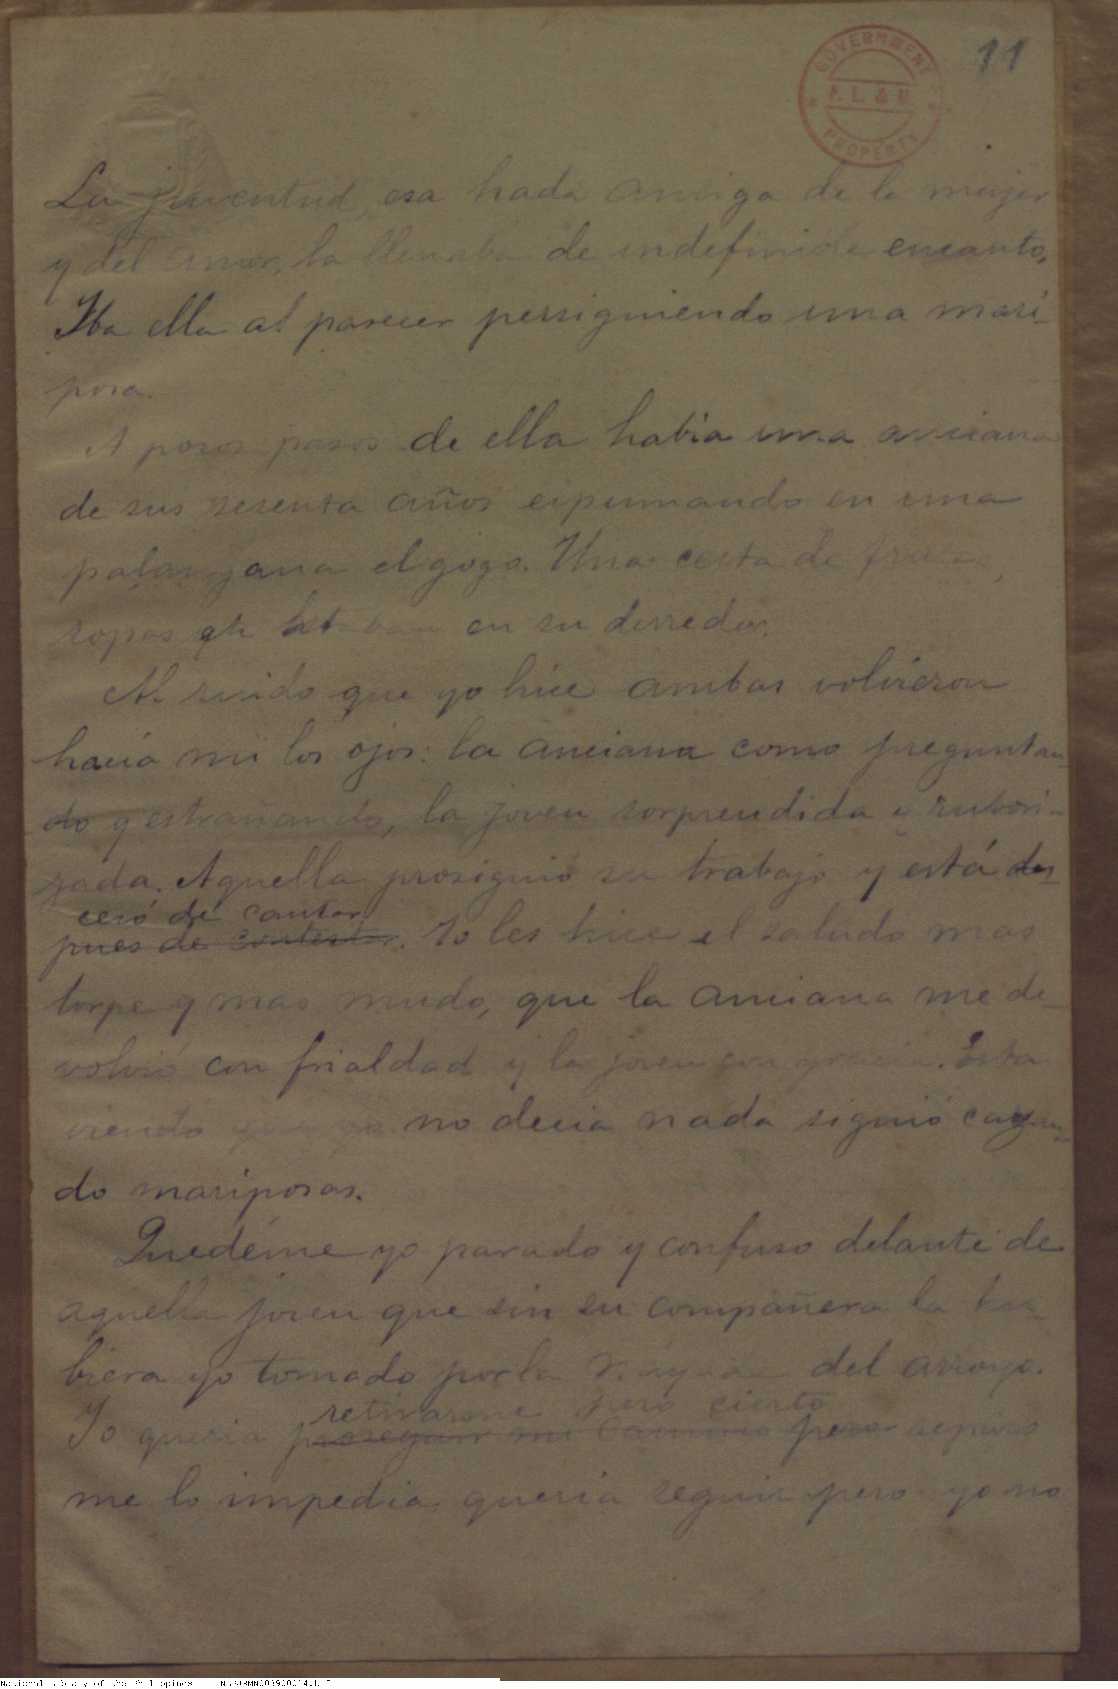 11
GOVERNMENT
P. L. & M.
PROPERTY
La juventud, esa hada amiga de la mujer
y del amor, la llenaba de indefinido encanto.
Iba ella al parecer persiguiendo una mari-
posa.
A pocos pasos de ella habia una anciana
de sus sesenta años espumando en una
palangana el gogo. Una cesta de
ropas en su derredor.
Al ruido que yo hice ambas volvieron
hacia mi los ojos: la anciana como preguntan-
do y estrañando, la joven sorprendida y rubori-
zada. Aquella prosiguió su trabajo y está des
cesó de cantar
pues de contestar. Yo les hice el saludo mas
torpe y mas mudo, que la anciana me de-
volvió con frialdad y la joven con gracia. Esta
viendo no decia nada siguió cazan-
do mariposas.
Quedéme yo parado y confuso delante de
aquella joven que sin su compañera la hu-
biera yo tomado por la del arroyo.
retirarme pero cierto
Yo queria proseguir mi camino pero
me lo impedia, queria seguir pero yo no
National Library of the Philippines